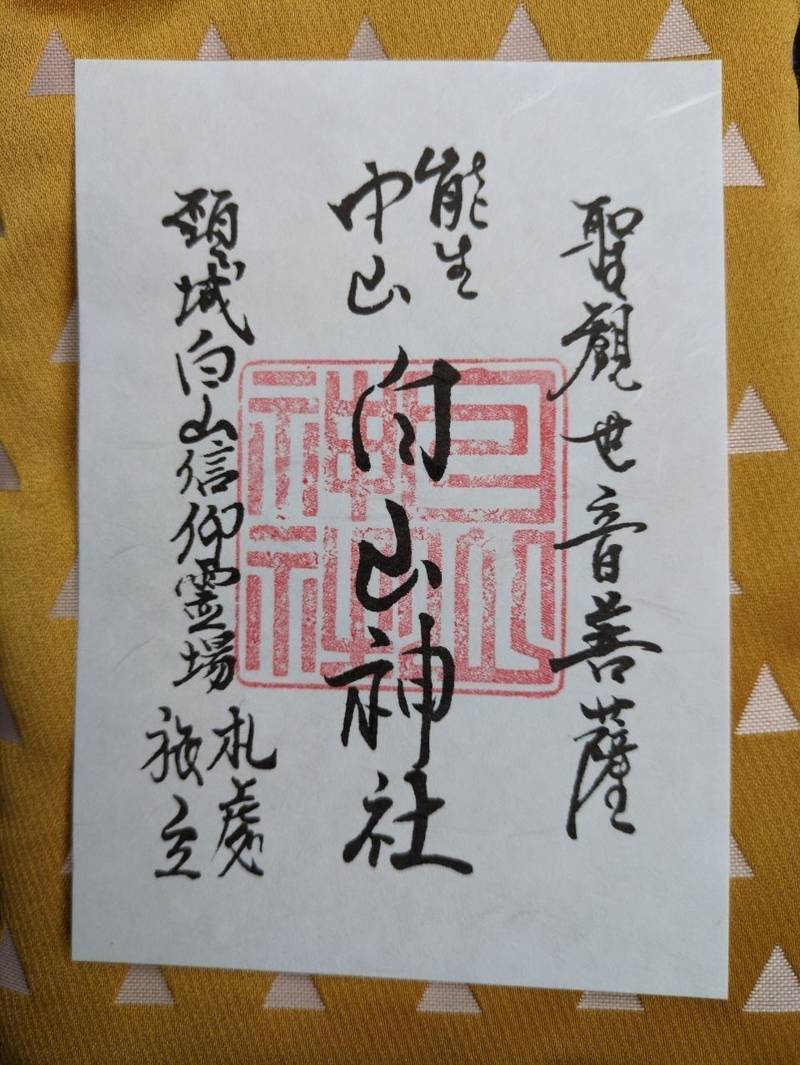 聖観世音菩薩
能生
中山
白山神社
頸城白山信仰霊場
札處
旅立
白山神社